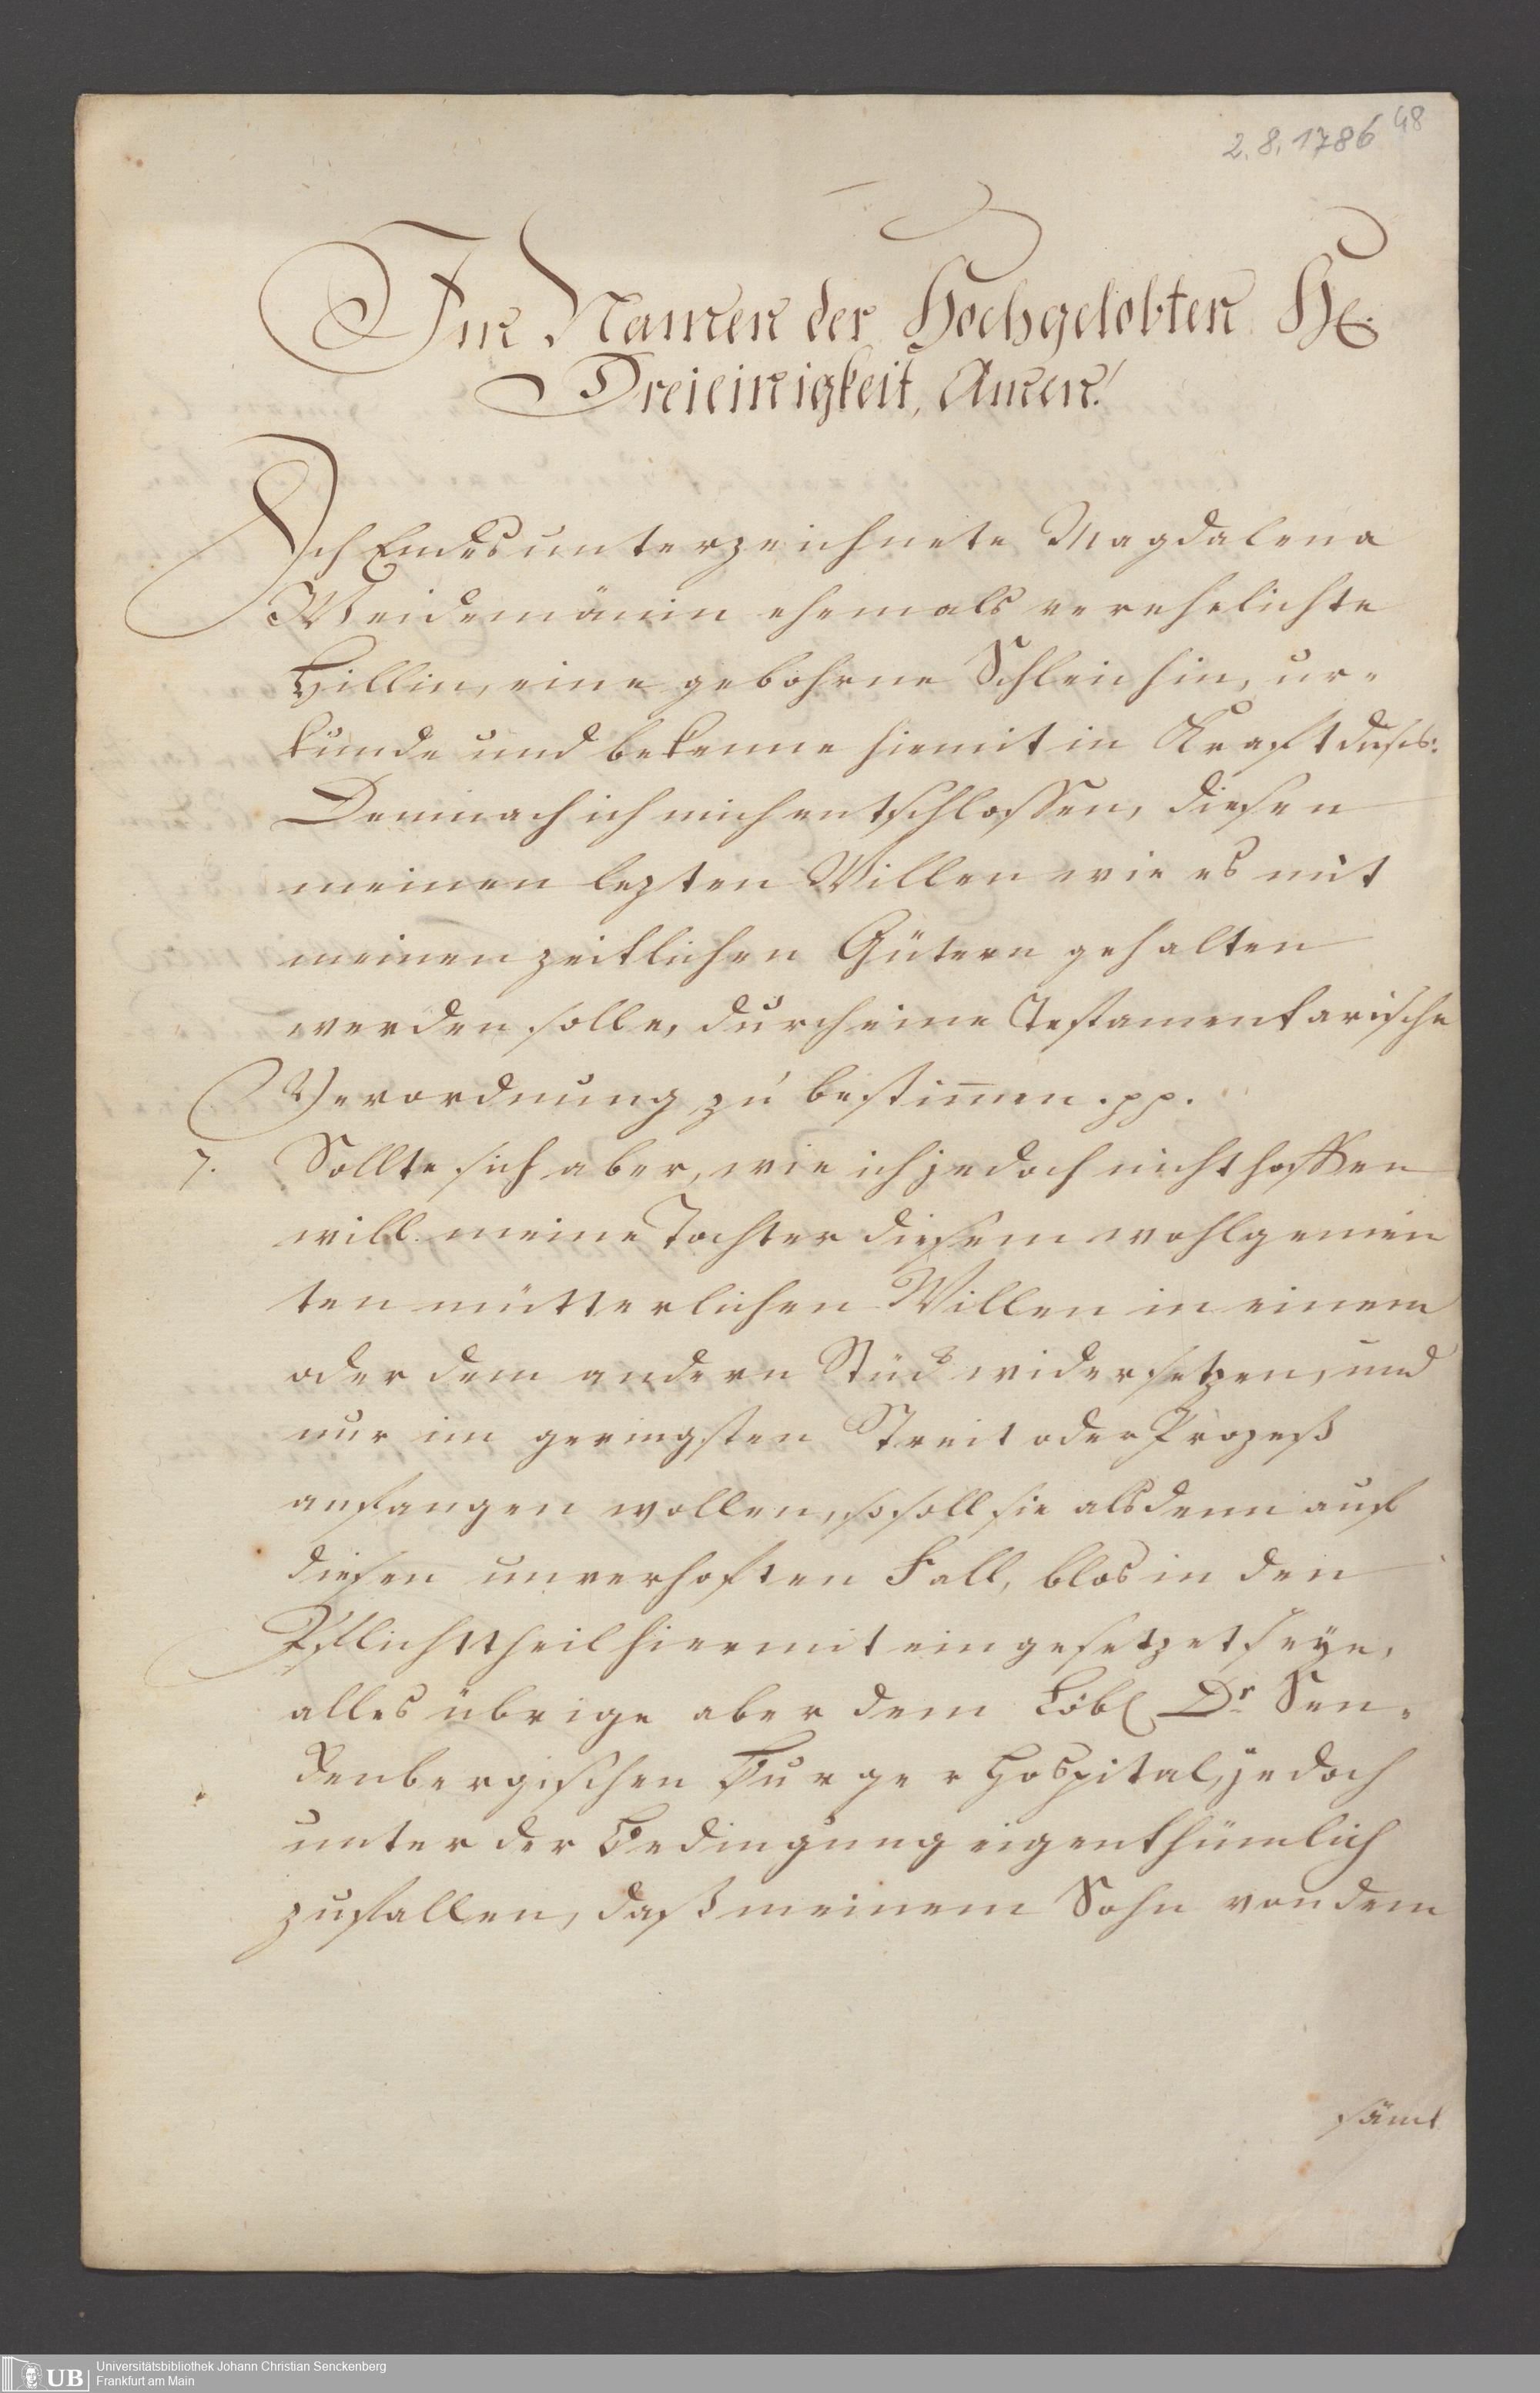 2. 8. 1786 48
Im Namen der Hochgelobten H.
Dreieinigkeit, Amen!
Ich Endesunterzeichnete Magdalena
Weidemänin ehemals verehelichte
Hillin, eine gebohrne Schleichin, ur-
kunde und bekenne hiemit in Kraft dieses:
Demnach ich mich entschlossen, diesen
meinen lezten Willen wie es mit
meinen zeitlichen Gütern gehalten
werden solle, durch eine Testamentarische
Verordnung zu bestim̅en. pp.
7. Sollte sich aber, wie ich jedoch nicht hoffen
will meine Tochter diesem wohlgemein
ten mütterlichen Willen in einem
oder dem andern Stück widersetzen, und
nur im geringsten Streit oder Prozeß
anfangen wollen, so soll sie alsdenn auf
diesen unverhoften Fall, blos in den
Pflichttheil hiermit eingesetzet seye,
alles übrige aber dem Löbl Dr Sen-
ckenbergischen Burger Hospital, jedoch
unter der Bedingung eigenthümlich
zufallen, daß meinem Sohn von dem
sämt
UB Universitätsbibliothek Johann Christian Senckenberg
Frankfurt am Main